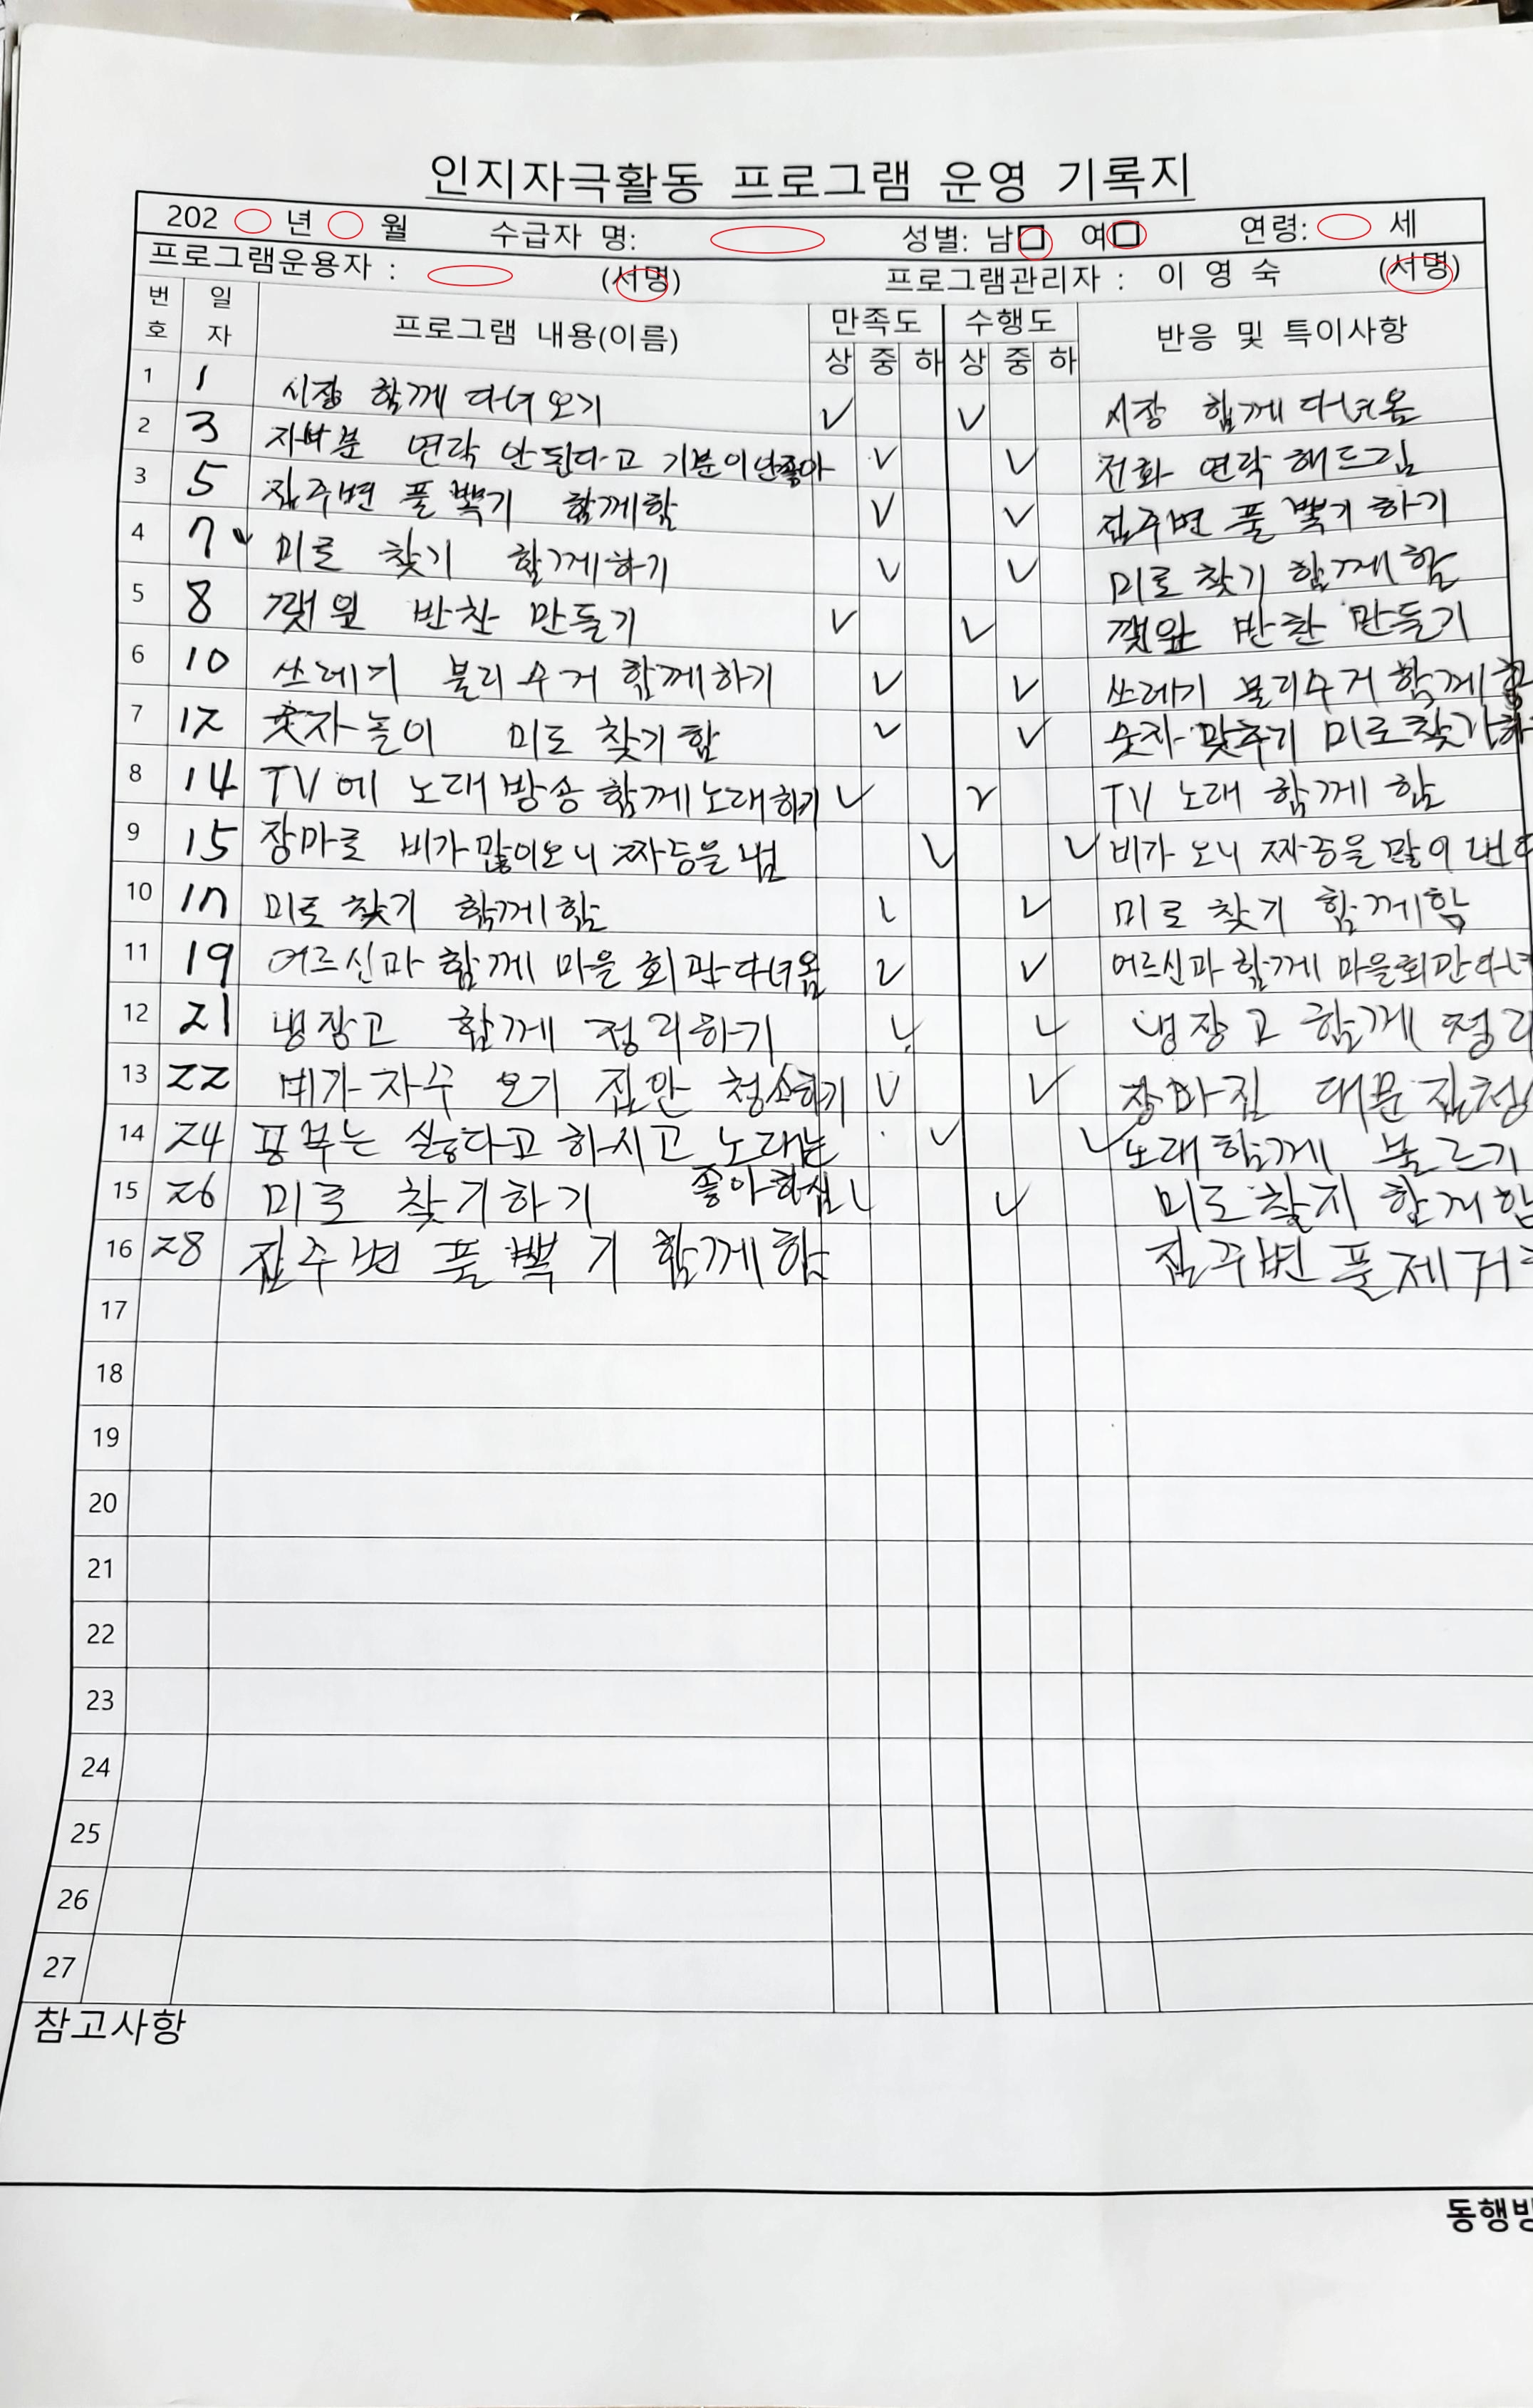 인지자극활동 프로그램 운영 기록지
202 년 월 수급자 명: 성별: 남□ 여□ 연령: 세
프로그램운용자 : (서명) 프로그램관리자 : 이 영 숙 (서명)
번호 일자 프로그램 내용(이름) 만족도 수행도 반응 및 특이사항
상 중 하 상 중 하
1 1 시장 함께 다녀오기 ✓ ✓ 시장 함께 다녀옴
2 3 자녀분 연락 안된다고 기분이 안좋아 ✓ ✓ 전화 연락 해드림
3 5 집주변 풀 뽁기 함께함 ✓ ✓ 집주변 풀 뽁기 하기
4 7 미로 찾기 함께하기 ✓ ✓ 미로 찾기 함께 함
5 8 깻잎 반찬 만들기 ✓ ✓ 깻잎 반찬 만들기
6 10 쓰레기 분리수거 함께하기 ✓ ✓ 쓰레기 분리수거 함께
7 12 숫자놀이 미로 찾기함 ✓ ✓ 숫자 맞추기 미로찾기
8 14 TV에 노래방송 함께노래하기 ✓ ✓ TV 노래 함께 함
9 15 장마로 비가많이오니 짜증을 냄 ✓ ✓ 비가 오니 짜증을 많이 낸다
10 17 미로 찾기 함께함 ✓ ✓ 미로 찾기 함께함
11 19 어르신과 함께 마을 회관다녀옴 ✓ ✓ 어르신과 함께 마을회관다녀
12 21 냉장고 함께 정리하기 ✓ ✓ 냉장고 함께 정리
13 22 비가 자주 오기 집안 청소하기 ✓ ✓ 장마집 대문 집청
14 24 공부는 싫다고 하시고 노래는 ✓ ✓ 노래함께 부르기
좋아하심
15 26 미로 찾기하기 ✓ ✓ 미로 찾기 함께함
16 28 집주변 풀뽁기 함께함 집주변 풀제거
17
18
19
20
21
22
23
24
25
26
27
참고사항
동행방